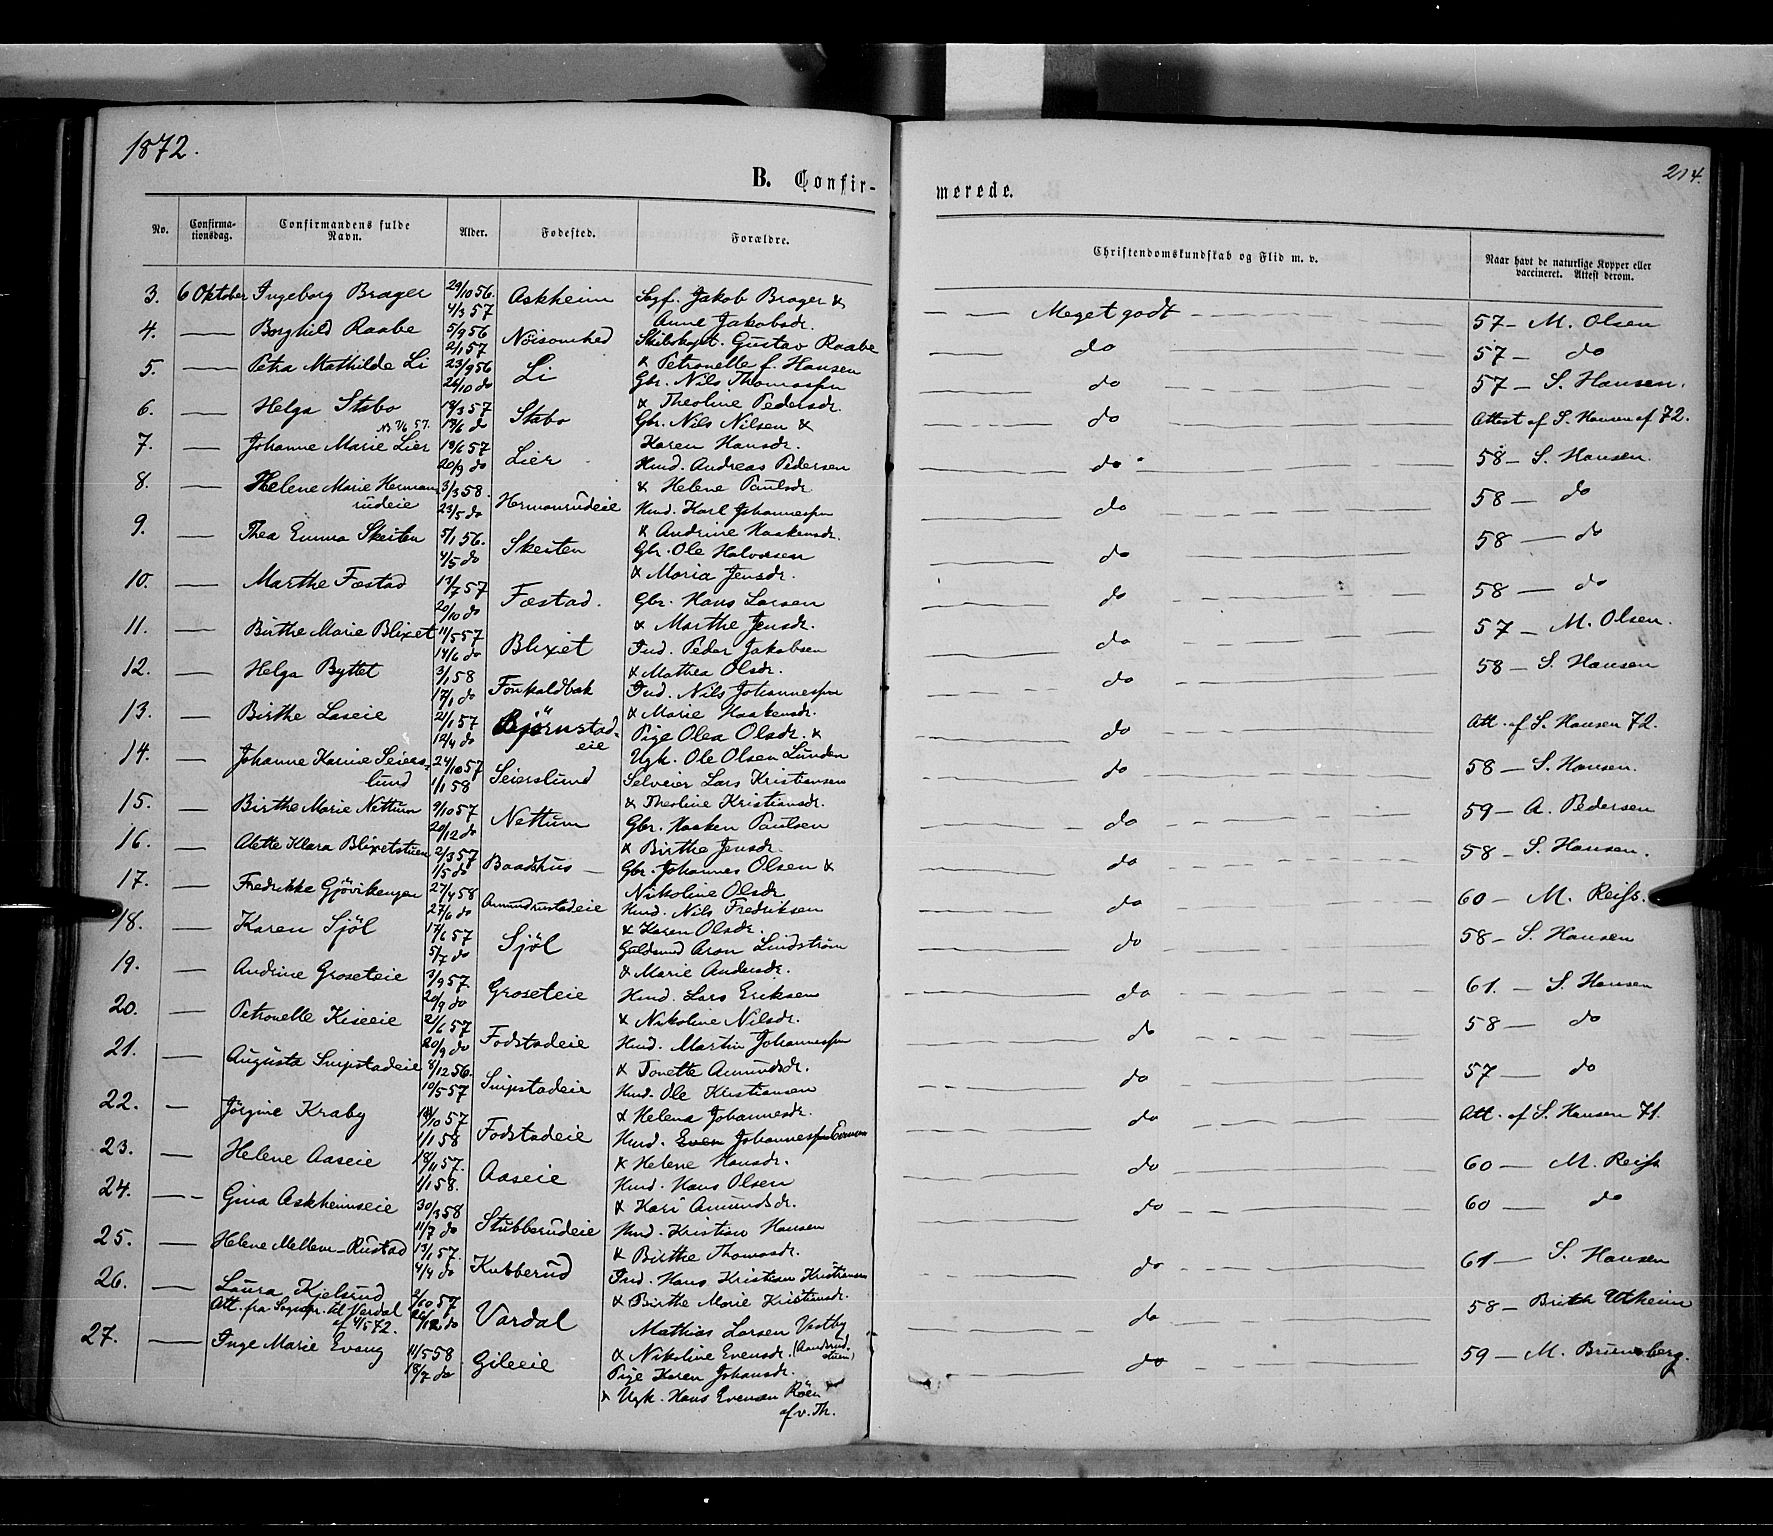 1872.
214.
B. Confir-
merede.
No.
Confirma-
tionsdag.
Confirmandens fulde
Navn.
Alder.
Fødested.
Forældre.
Christendomskundskab og Flid m. v.
Naar havt de naturlige Kopper eller
vaccineret. Attest derom.
3. 6 Oktober Ingeborg Brager 29/10 56. 4/3 57 Askheim Sgf. Jakob Brager &
Anne Jakobsdr. Meget godt 57 – M. Olsen
4. — Borghild Raabe 5/9 56 2/1 57 Nöisomhed Skibskapt. Gustav Raabe
& Petronelle f. Hansen do 57 – do
5. — Petra Mathilde Li 23/9 56 26/10 do Li Gbr. Nils Thomassen
& Theoline Pedersdr. do 57 – S. Hansen.
6. — Helga Stabo 18/3 57 18/6 do Stabo Gbr. Nils Nilsen &
Karen Hansdr. do Attest af S. Hansen af 72.
NB 7/6 57.
7. — Johanne Marie Lier 18/6 57 20/9 do Lier Hmd. Andreas Pedersen
& Helene Paulsdr. do 58 – S. Hansen.
8. — Helene Marie Herman
rudeie 3/3 58. 23/5 do Hermanrudeie Hmd. Karl Johannessen
& Andrine Haakensdr. do 58 — do
9. — Thea Emma Skeiten 5/1 56. 4/5 do Skeiten Gbr. Ole Halvorsen
& Maria Jensdr. do 58 — do
10. — Marthe Fæstad 13/7 57 20/10 do Fæstad. Gbr. Hans Larsen
& Marthe Jensdr. do 58 — do
11. — Birthe Marie Blixet 11/5 57 14/6 do Blixet Ind. Peder Jakobsen
& Mathea Olsdr. do 57 – M. Olsen.
12. — Helga Byttet 3/1 58 17/1 do Fonkaldbak Ind. Nils Johannessen
& Marie Haakensdr. do 58 – S. Hansen
13. — Birthe Laseie 21/1 57 12/4 do Björnstad-
eie Pige Olea Olsdr. &
Ugk. Ole Olsen Lunden do Att. af S. Hansen 72.
14. — Johanne Karine Seiers-
lund 24/10 57 1/1 58 Seierslund Selveier Lars Kristiansen
& Theoline Kristiansdr. do 58 — S. Hansen.
15. — Birthe Marie Nettum 9/10 57 20/12 do Nettum Gbr. Haaken Paulsen
& Birthe Jensdr. do 59 – A. Pedersen
16. — Alette Klara Blixetstuen 2/3 57 1/5 do Baadshus – Gbr. Johannes Olsen &
Nikoline Olsdr. do 58 – S. Hansen.
17. — Fredrikke Gjövikengen 27/4 58 27/6 do Amundrustadeie Hmd. Nils Fredriksen
& Karen Olsdr. do 60 – M. Reifs.
18. — Karen Sjöl 17/6 57 5/7 do Sjöl Guldsmed Aron Lindström
& Marie Andersdr. do 58 – S. Hansen
19. — Andrine Groseteie 3/9 57 20/9 do Groseteie Hmd. Lars Eriksen
& Nikoline Nilsdr. do 61. – S. Hansen
20. — Petronelle Kiseeie 21/6 57 20/9 do Fodstadeie Hmd. Martin Johannessen
& Tonette Amundsdr. do 58 — do
21. — Augusta Snipstadeie 8/12 56. 10/5 57 Snipstadeie Hmd. Ole Kristiansen
& Helena Johannesdr. do 57 — do
22. — Jörgine Kraby 14/10 57 1/1 58 Fodstadeie Hmd. Even Johannessen
& Helene Hansdr. do Att. af S. Hansen 71.
23. — Helene Aaseie 18/11 57. 1/1 58. Aaseie Hmd. Hans Olsen
& Kari Amundsdr. do 60 — M. Reifs
24. — Gina Askheimseie 30/3 58 11/7 do Stubberudeie Hmd. Kristian Hansen
& Birthe Thomasdr. do 60 — do
25. — Helene Mellem-Rustad 13/1 57. 4/4 do Kubberud Ind. Hans Kristian Kristiansen
& Birthe Marie Kristiansdr. do 61 – S. Hansen
26. — Laura Kjelsrud
Att. fra Sognepr. til Vardal
af 4/5 72. 2/10 57 26/12 do Vardal Mathias Larsen Vestby
& Nikoline Evensdr. do 58 – Brith Utheim
27. — Inge Marie Evang 11/5 58 18/7 do Gileeie Pige Karen Johansdr.
& Ugk. Hans Evensen Röen
af v. Th. do 59 – M. Brunsberg.